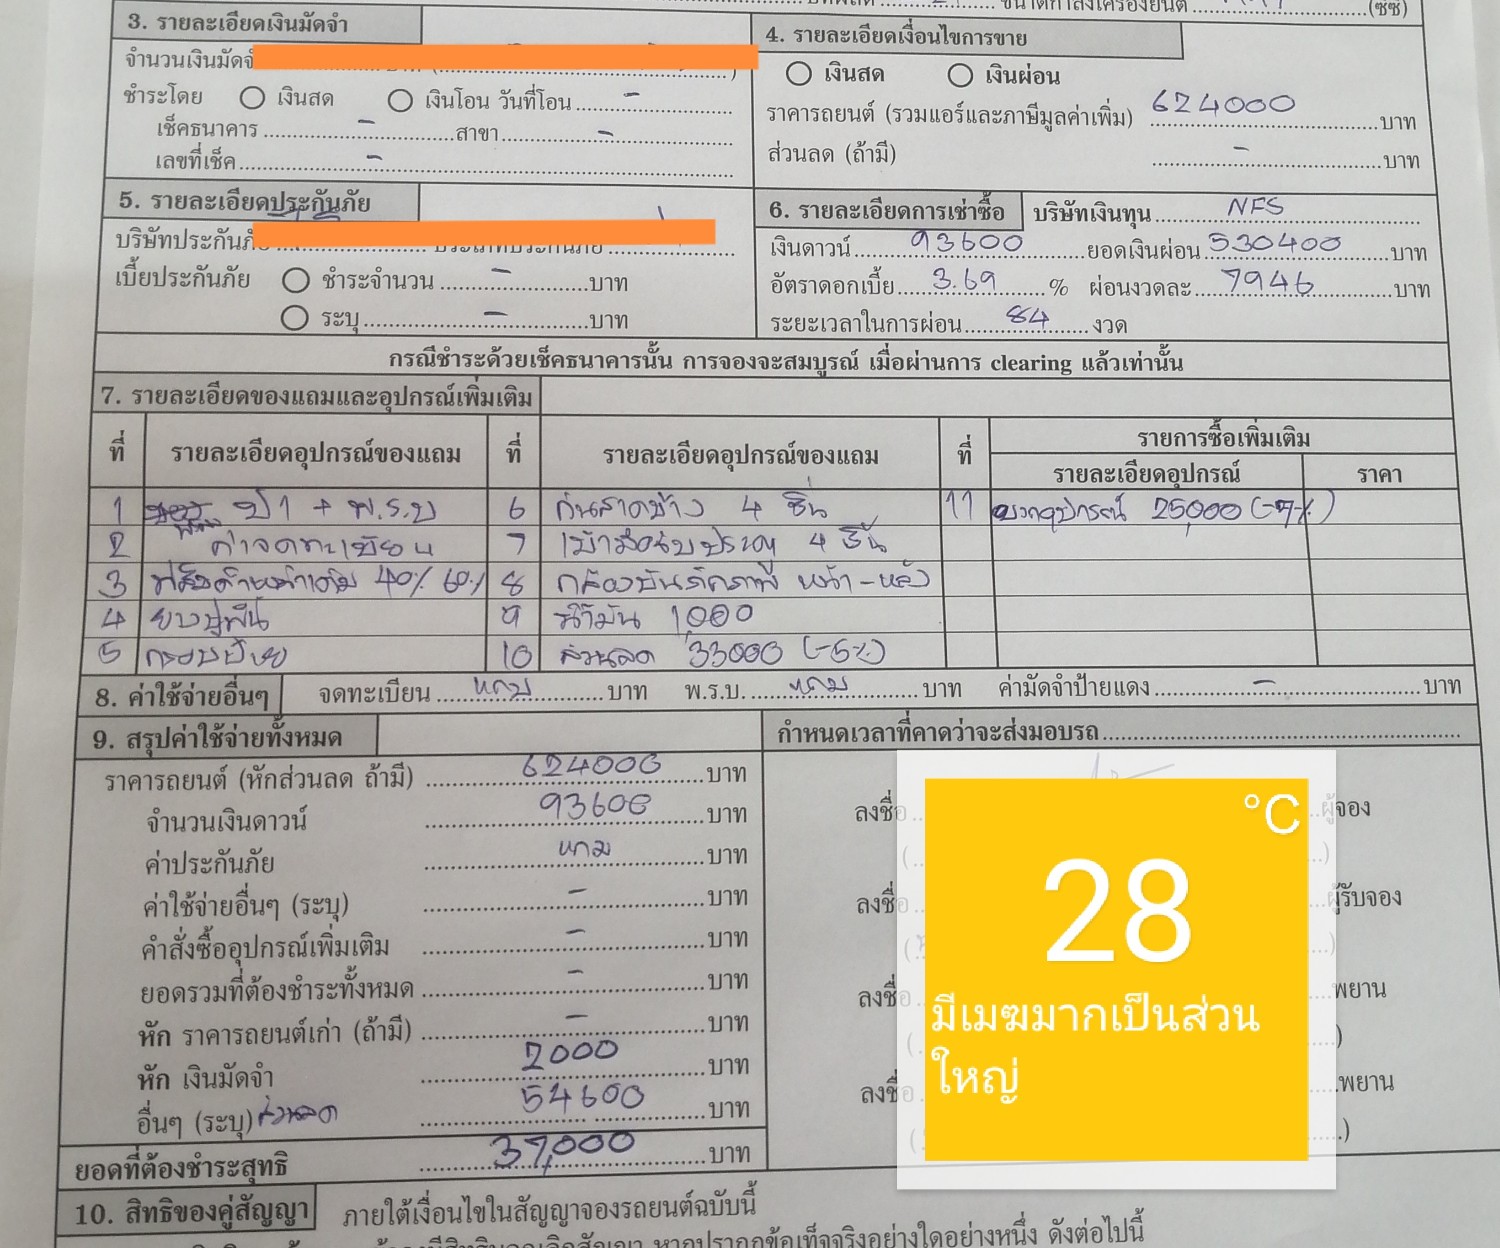 3. รายละเอียดเงินมัดจำ
จำนวนเงินมัดจำ
ชำระโดย เงินสด เงินโอน วันที่โอน -
เช็คธนาคาร - สาขา -
เลขที่เช็ค -
ขนาดกำลังเครื่องยนต์ (ซีซี)
4. รายละเอียดเงื่อนไขการขาย
เงินสด เงินผ่อน
ราคารถยนต์ (รวมแอร์และภาษีมูลค่าเพิ่ม) 624000 บาท
ส่วนลด (ถ้ามี) - บาท
5. รายละเอียดประกันภัย
บริษัทประกันภัย ประเภทประกันภัย
เบี้ยประกันภัย ชำระจำนวน - บาท
ระบุ - บาท
6. รายละเอียดการเช่าซื้อ บริษัทเงินทุน NFS
เงินดาวน์ 93600 ยอดเงินผ่อน 530400 บาท
อัตราดอกเบี้ย 3.69 % ผ่อนงวดละ 7946 บาท
ระยะเวลาในการผ่อน 84 งวด
กรณีชำระด้วยเช็คธนาคารนั้น การจองจะสมบูรณ์ เมื่อผ่านการ clearing แล้วเท่านั้น
7. รายละเอียดของแถมและอุปกรณ์เพิ่มเติม
ที่ รายละเอียดอุปกรณ์ของแถม ที่ รายละเอียดอุปกรณ์ของแถม ที่ รายการซื้อเพิ่มเติม
รายละเอียดอุปกรณ์ ราคา
1 ป1 + พ.ร.บ 6 กันสาดข้าง 4 ชิ้น 11 บวกอุปกรณ์ 25,000 (-7%)
2 ค่าจดทะเบียน 7 เบ้ามือจับประตู 4 ชิ้น
3 40% 60% 8 กล้องบันทึกภาพ หน้า-หลัง
4 ยางปูพื้น 9 น้ำมัน 1000
5 กรอบป้าย 10 ส่วนลด 33000 (-5%)
8. ค่าใช้จ่ายอื่นๆ จดทะเบียน แถม บาท พ.ร.บ. แถม บาท ค่ามัดจำป้ายแดง - บาท
9. สรุปค่าใช้จ่ายทั้งหมด
ราคารถยนต์ (หักส่วนลด ถ้ามี) 624000 บาท
จำนวนเงินดาวน์ 93600 บาท
ค่าประกันภัย แถม บาท
ค่าใช้จ่ายอื่นๆ (ระบุ) - บาท
คำสั่งซื้ออุปกรณ์เพิ่มเติม - บาท
ยอดรวมที่ต้องชำระทั้งหมด - บาท
หัก ราคารถยนต์เก่า (ถ้ามี) - บาท
หัก เงินมัดจำ 2000 บาท
อื่นๆ (ระบุ) ส่วนลด 54600 บาท
ยอดที่ต้องชำระสุทธิ 37,000 บาท
กำหนดเวลาที่คาดว่าจะส่งมอบรถ
ลงชื่อ ผู้จอง
ลงชื่อ ผู้รับจอง
ลงชื่อ พยาน
ลงชื่อ พยาน
°C
28
มีเมฆมากเป็นส่วน
ใหญ่
10. สิทธิของคู่สัญญา ภายใต้เงื่อนไขในสัญญาจองรถยนต์ฉบับนี้
หากปรากฏข้อเท็จจริงอย่างใดอย่างหนึ่ง ดังต่อไปนี้